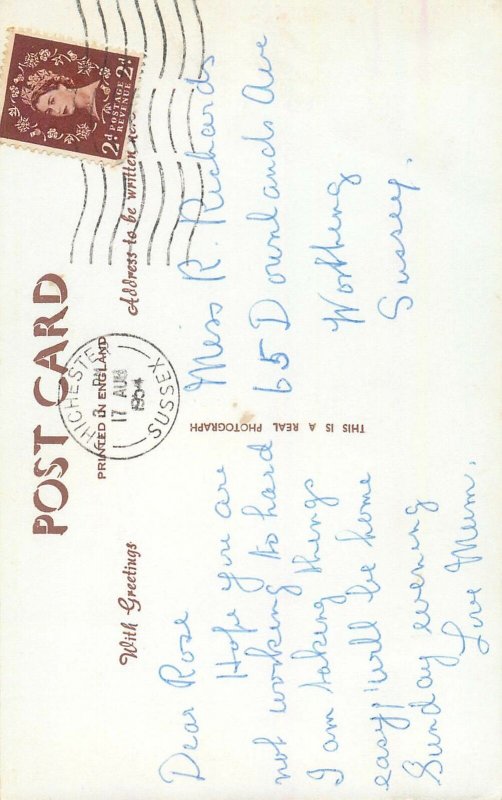 POST CARD
PRINTED IN ENGLAND
With Greetings
Address to be written here
2d POSTAGE REVENUE 2d
CHICHESTER
PM
17 AUG
1954
SUSSEX
Dear Rose
Hope you are
not working to hard
I am taking things
easy, will be home
Sunday evening
Love Mum.
THIS IS A REAL PHOTOGRAPH
Miss R. Richards
65 Downlands Ave
Worthing
Sussex.